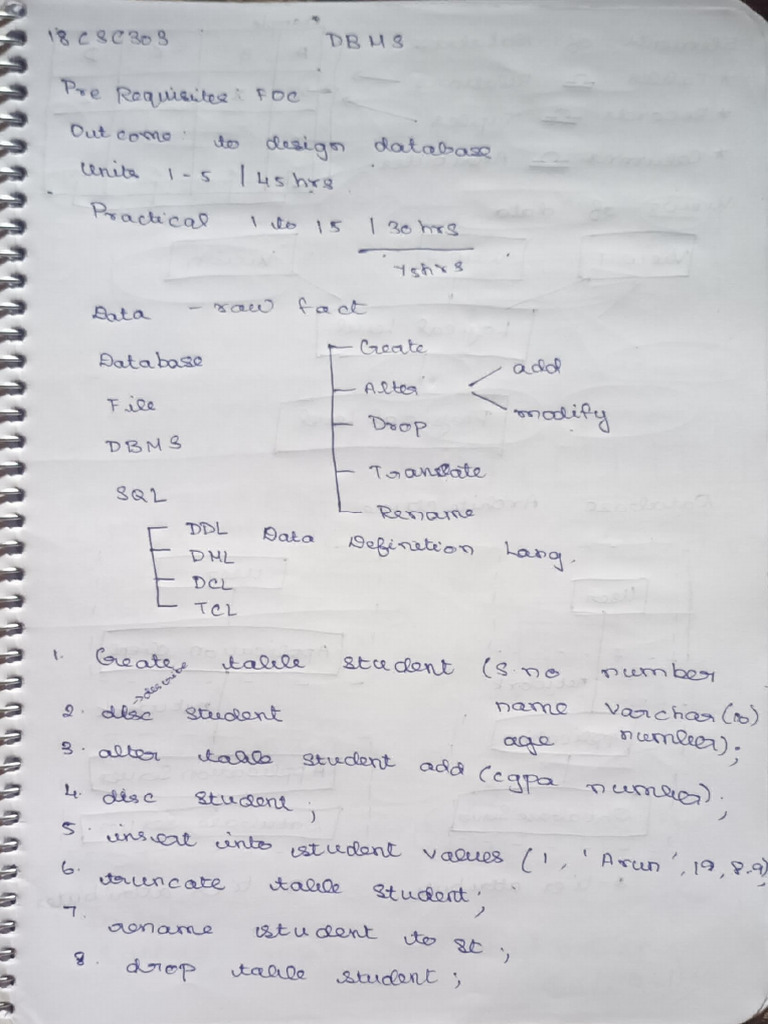 18CSC303 DBMS
Pre Requisites: FOC
Outcome: to design database
Units 1-5 / 45hrs
Practical 1 to 15 / 30hrs
75hrs
Data - raw fact
Database
File
DBMS
SQL
Create
Alter
add
modify
Drop
Translate
Rename
DDL Data Definition Lang.
DML
DCL
TCL
1. Create table student (s.no number
name varchar(20)
age number);
2. desc student
3. alter table student add (cgpa number);
4. desc student;
5. insert into student values (1, 'Arun', 19, 8.9)
6. truncate table student;
7. rename student to st;
8. drop table student;